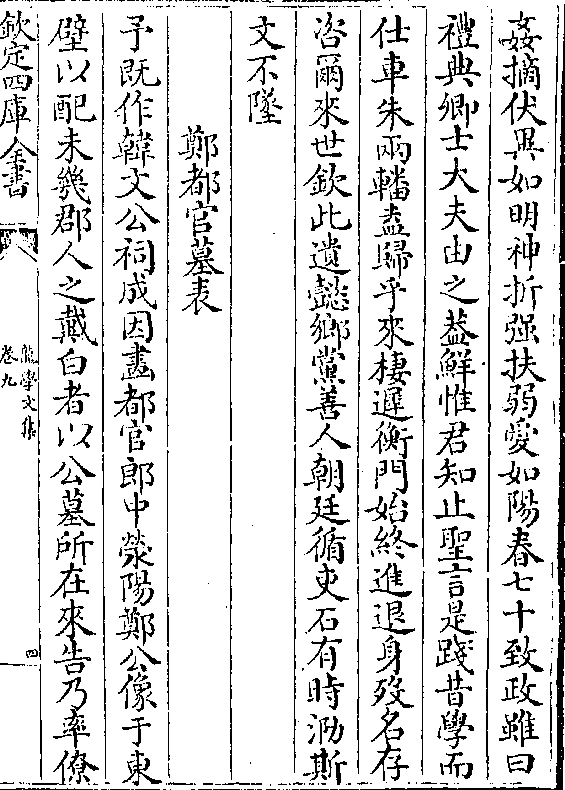 姦摘伏異如明神折强扶弱愛如陽春七十致政雖曰
禮典卿士大夫由之葢鮮惟君知止聖言是踐昔學而
仕車朱兩轓盍歸乎来棲遲衡門始終進退身歿名存
咨爾來世欽此遺懿鄉黨善人朝廷循吏石有時泐斯
文不墜
鄭都官墓表
予既作韓文公祠成因畫都官郎中滎陽鄭公像于東
壁以配未幾郡人之戴白者以公墓所在來告乃率僚
欽定四庫全書
龍學文集
卷九
四